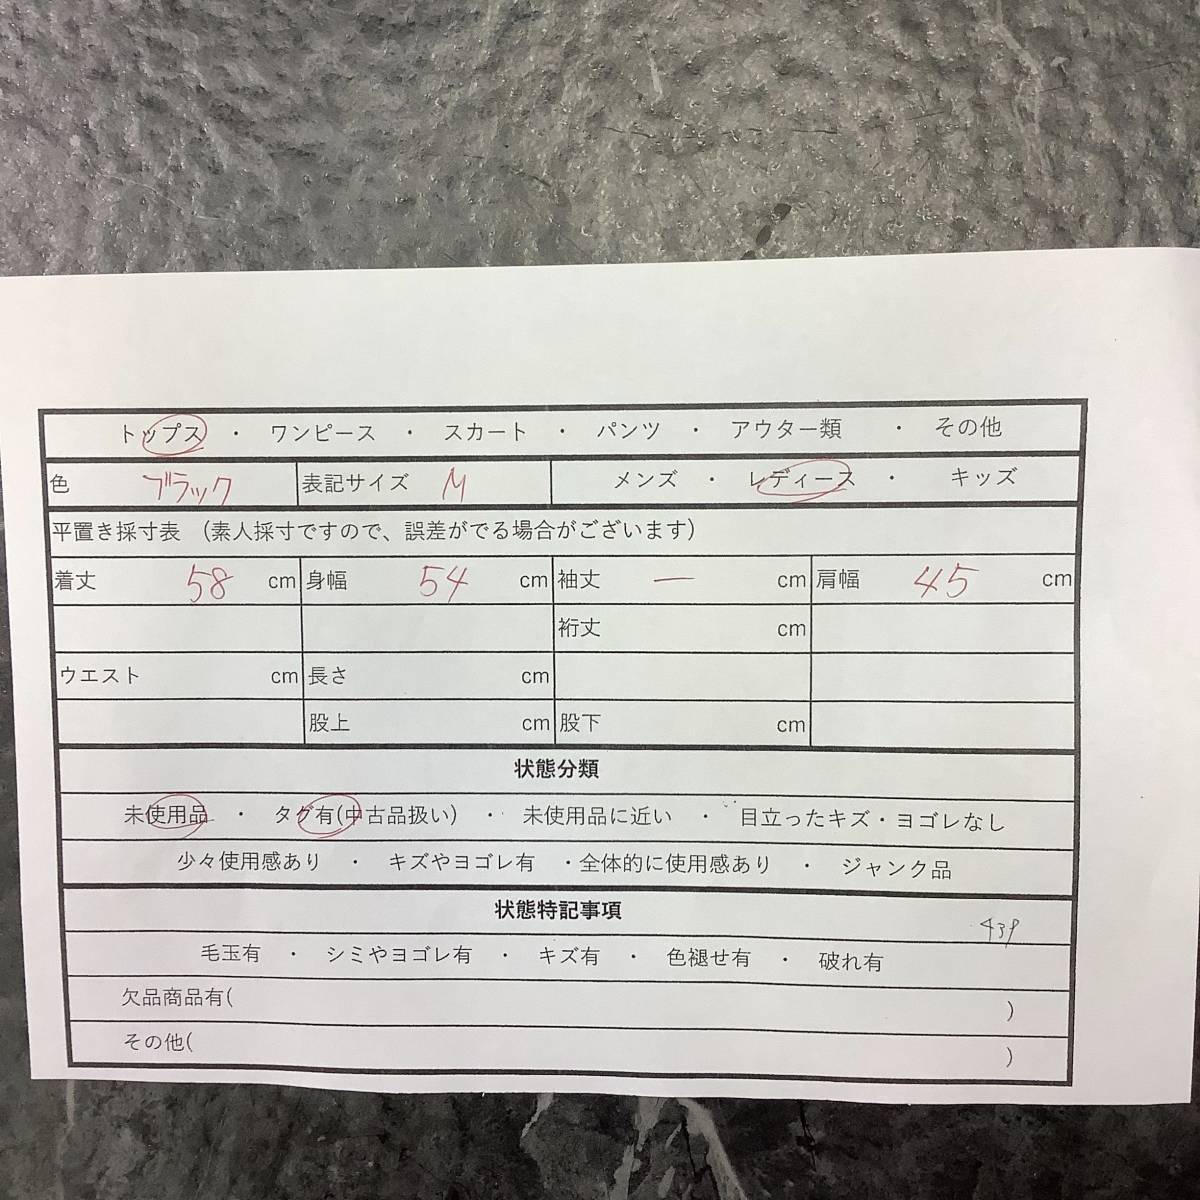 トップス ・ ワンピース ・ スカート ・ パンツ ・ アウター類 ・ その他
色 ブラック 表記サイズ M メンズ ・ レディース ・ キッズ
平置き採寸表 (素人採寸ですので、誤差がでる場合がございます)
着丈 58 cm 身幅 54 cm 袖丈 ー cm 肩幅 45 cm
裄丈 cm
ウエスト cm 長さ cm
股上 cm 股下 cm
状態分類
未使用品 ・ タグ有(中古品扱い) ・ 未使用品に近い ・ 目立ったキズ・ヨゴレなし
少々使用感あり ・ キズやヨゴレ有 ・全体的に使用感あり ・ ジャンク品
状態特記事項
毛玉有 ・ シミやヨゴレ有 ・ キズ有 ・ 色褪せ有 ・ 破れ有
欠品商品有( )
その他( )